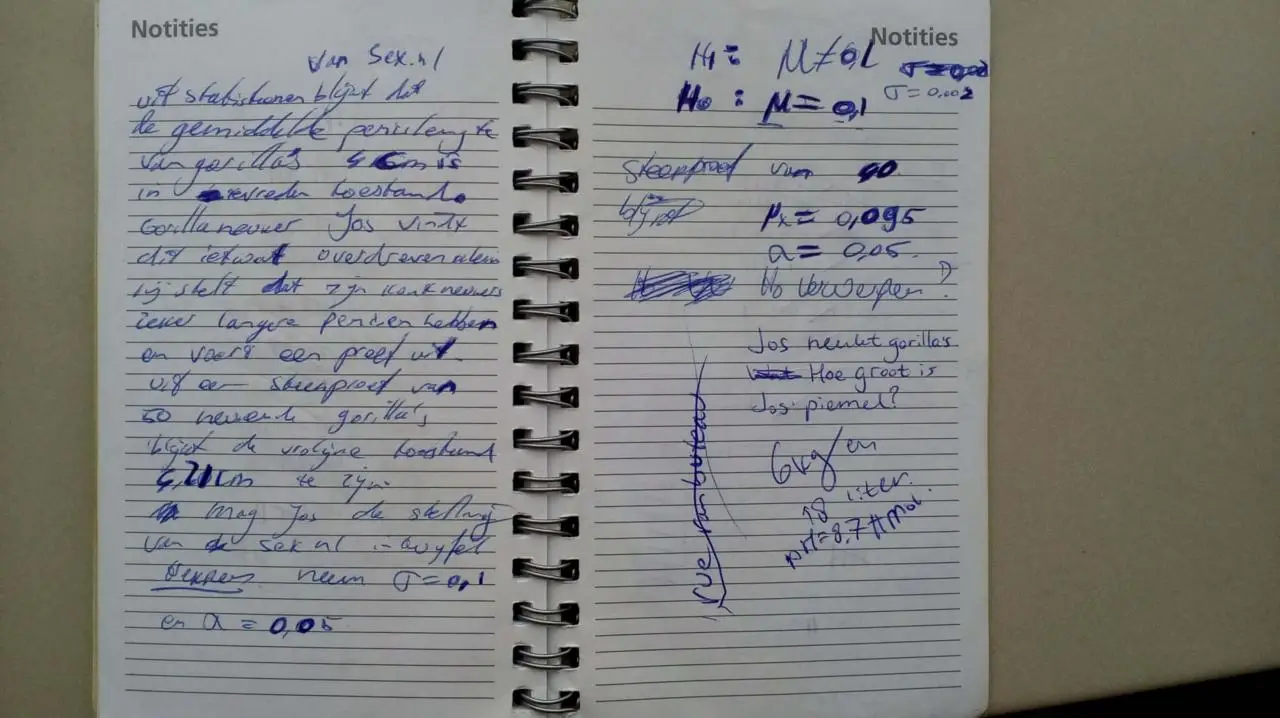 Notities
van Sex.nl
uit statistieken blijkt dat
de gemiddelde penislengte
van gorilla's 4 cm is
in tevreden toestand.
Gorillaneuker Jos vindt
dit ietwat overdreven klein
hij stelt dat zijn
zeker langere penissen hebben
en voert een proef uit.
uit een steekproef van
50 neukende gorilla's
blijkt de vrolijke toestand
4,21cm te zijn
mag Jos de stelling
van de sex.nl in twijfel
trekken neem σ=0,1
en α = 0,05
Notities
H₁: μ≠0,1
σ=0,002
H₀: μ=0,1
Steekproef van 90
blijkt μₓ= 0,095
α= 0,05.
H₀ verwerpen?
Jos neukt gorilla's
Hoe groot is
Jos piemel?
6kg/en
18 liter.
pH=8,7 # Mol.